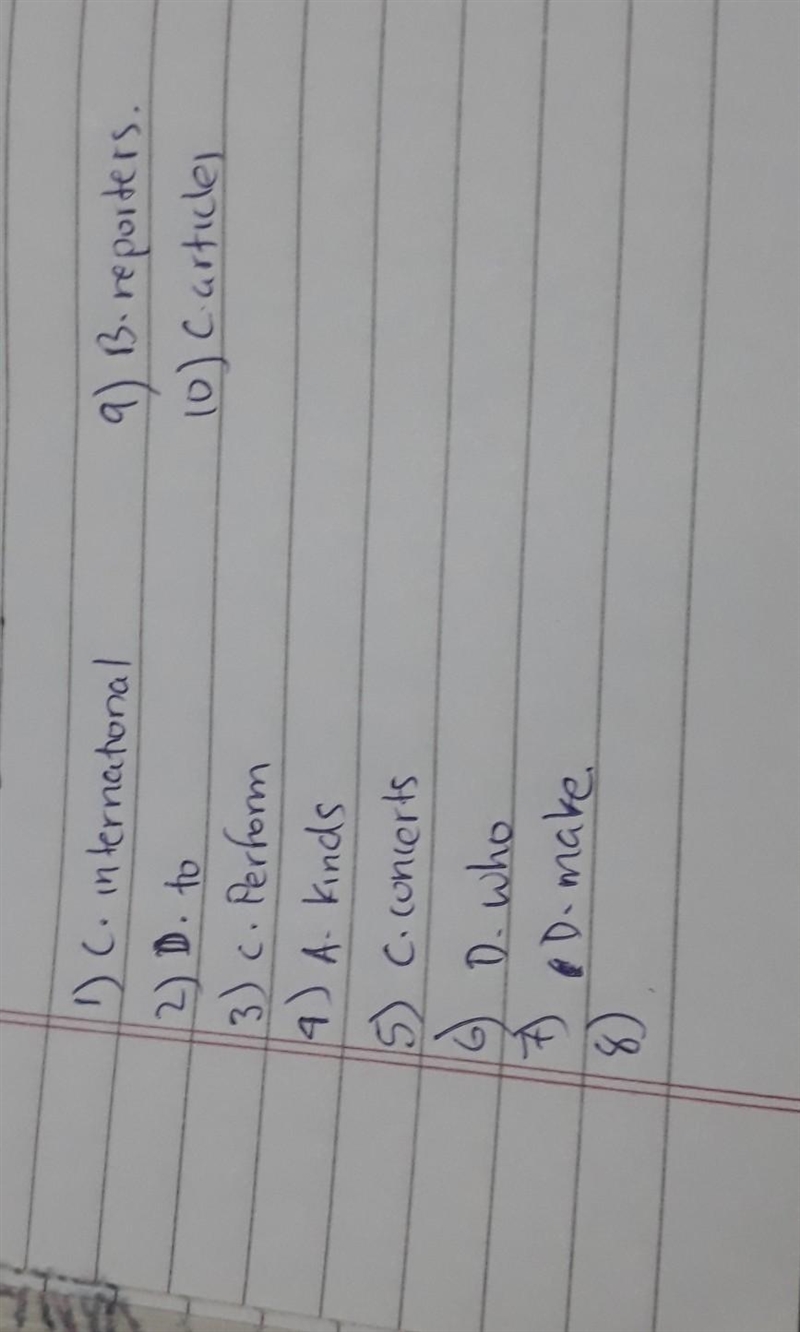 1) C. international
2) D. to
3) C. Perform
4) A. kinds
5) C. concerts
6) D. who
7) D. make.
8)
9) B. reporters.
10) C. articles